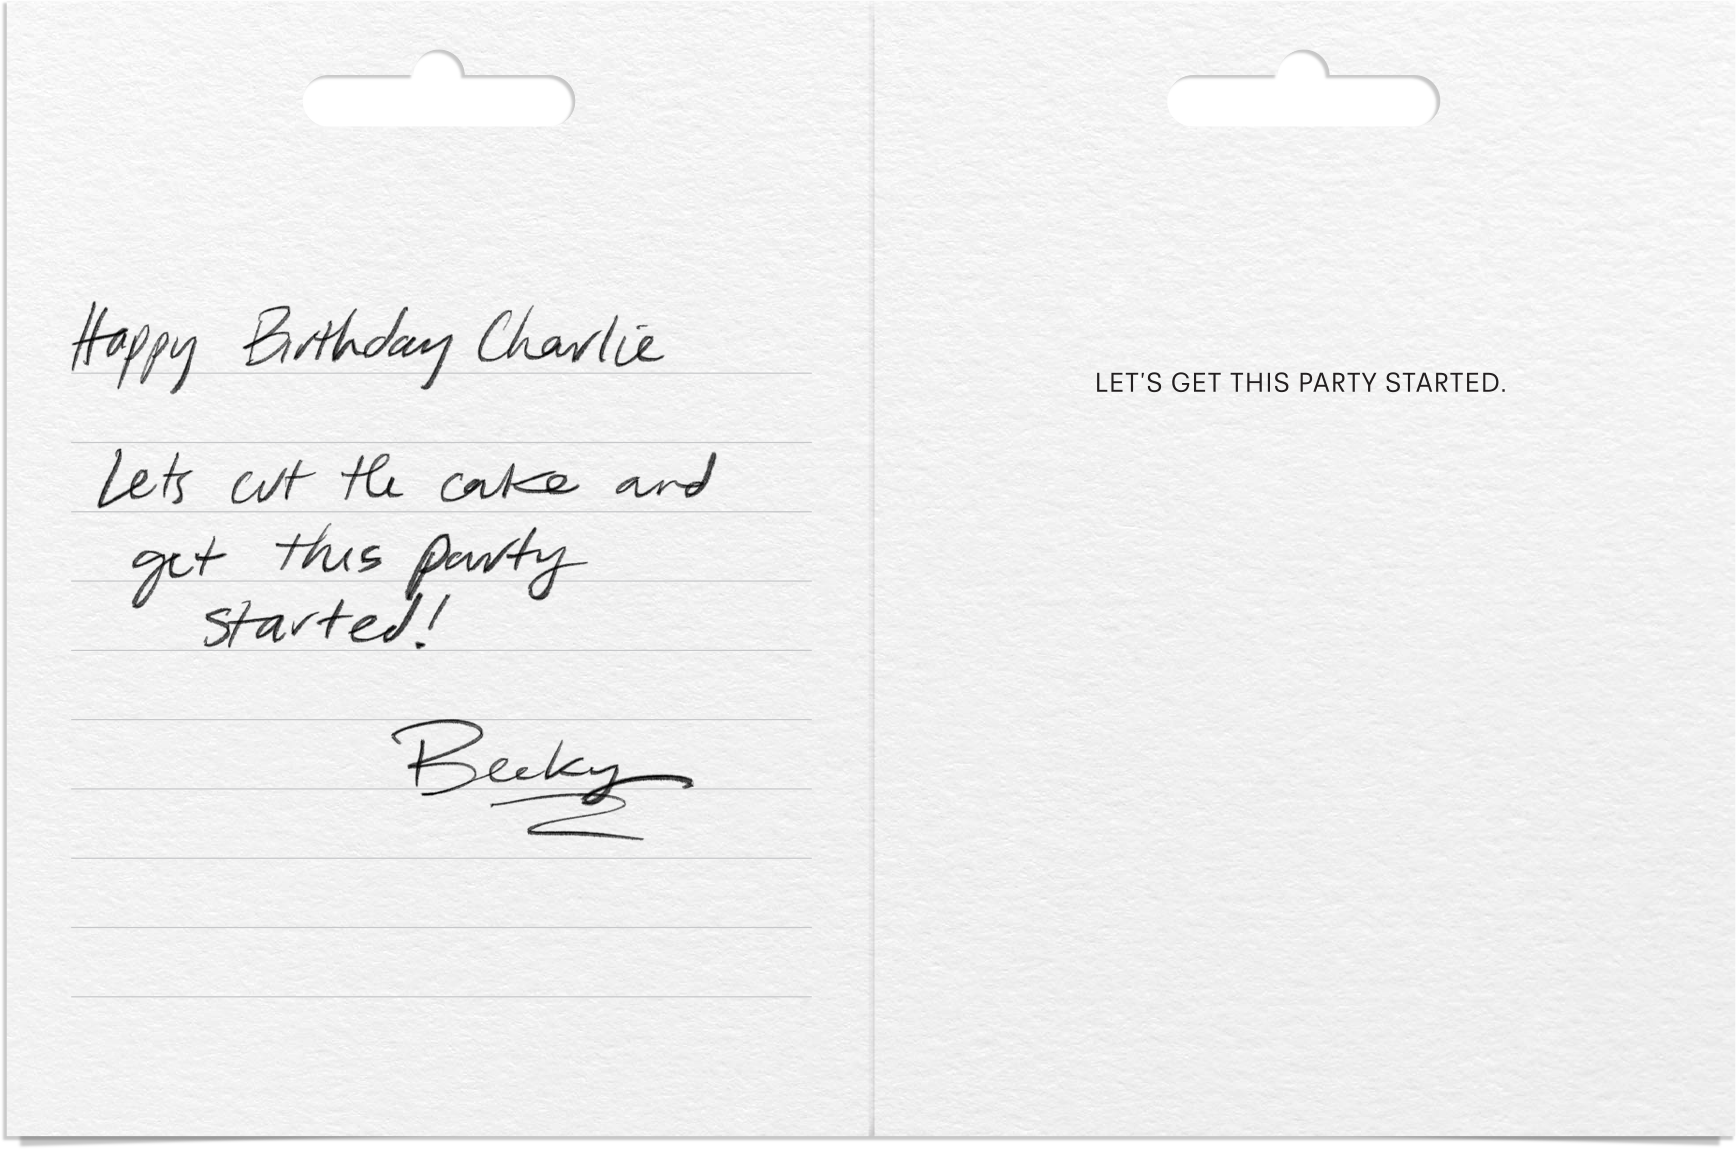 Happy Birthday Charlie
Lets cut the cake and
get this party
started!
Becky
LET'S GET THIS PARTY STARTED.